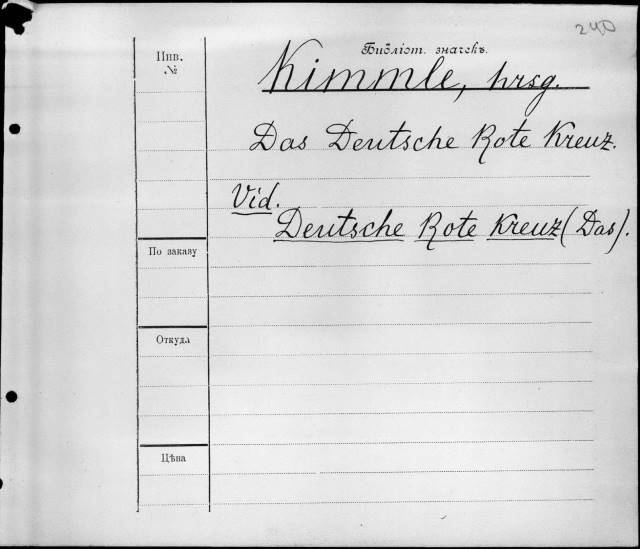 240
Инв.
№
Библіот. значекъ.
Kimmle, hrsg.
Das Deutsche Rote Kreuz.
Vid.
Deutsche Rote Kreuz (Das).
По заказу
Откуда
Цѣна